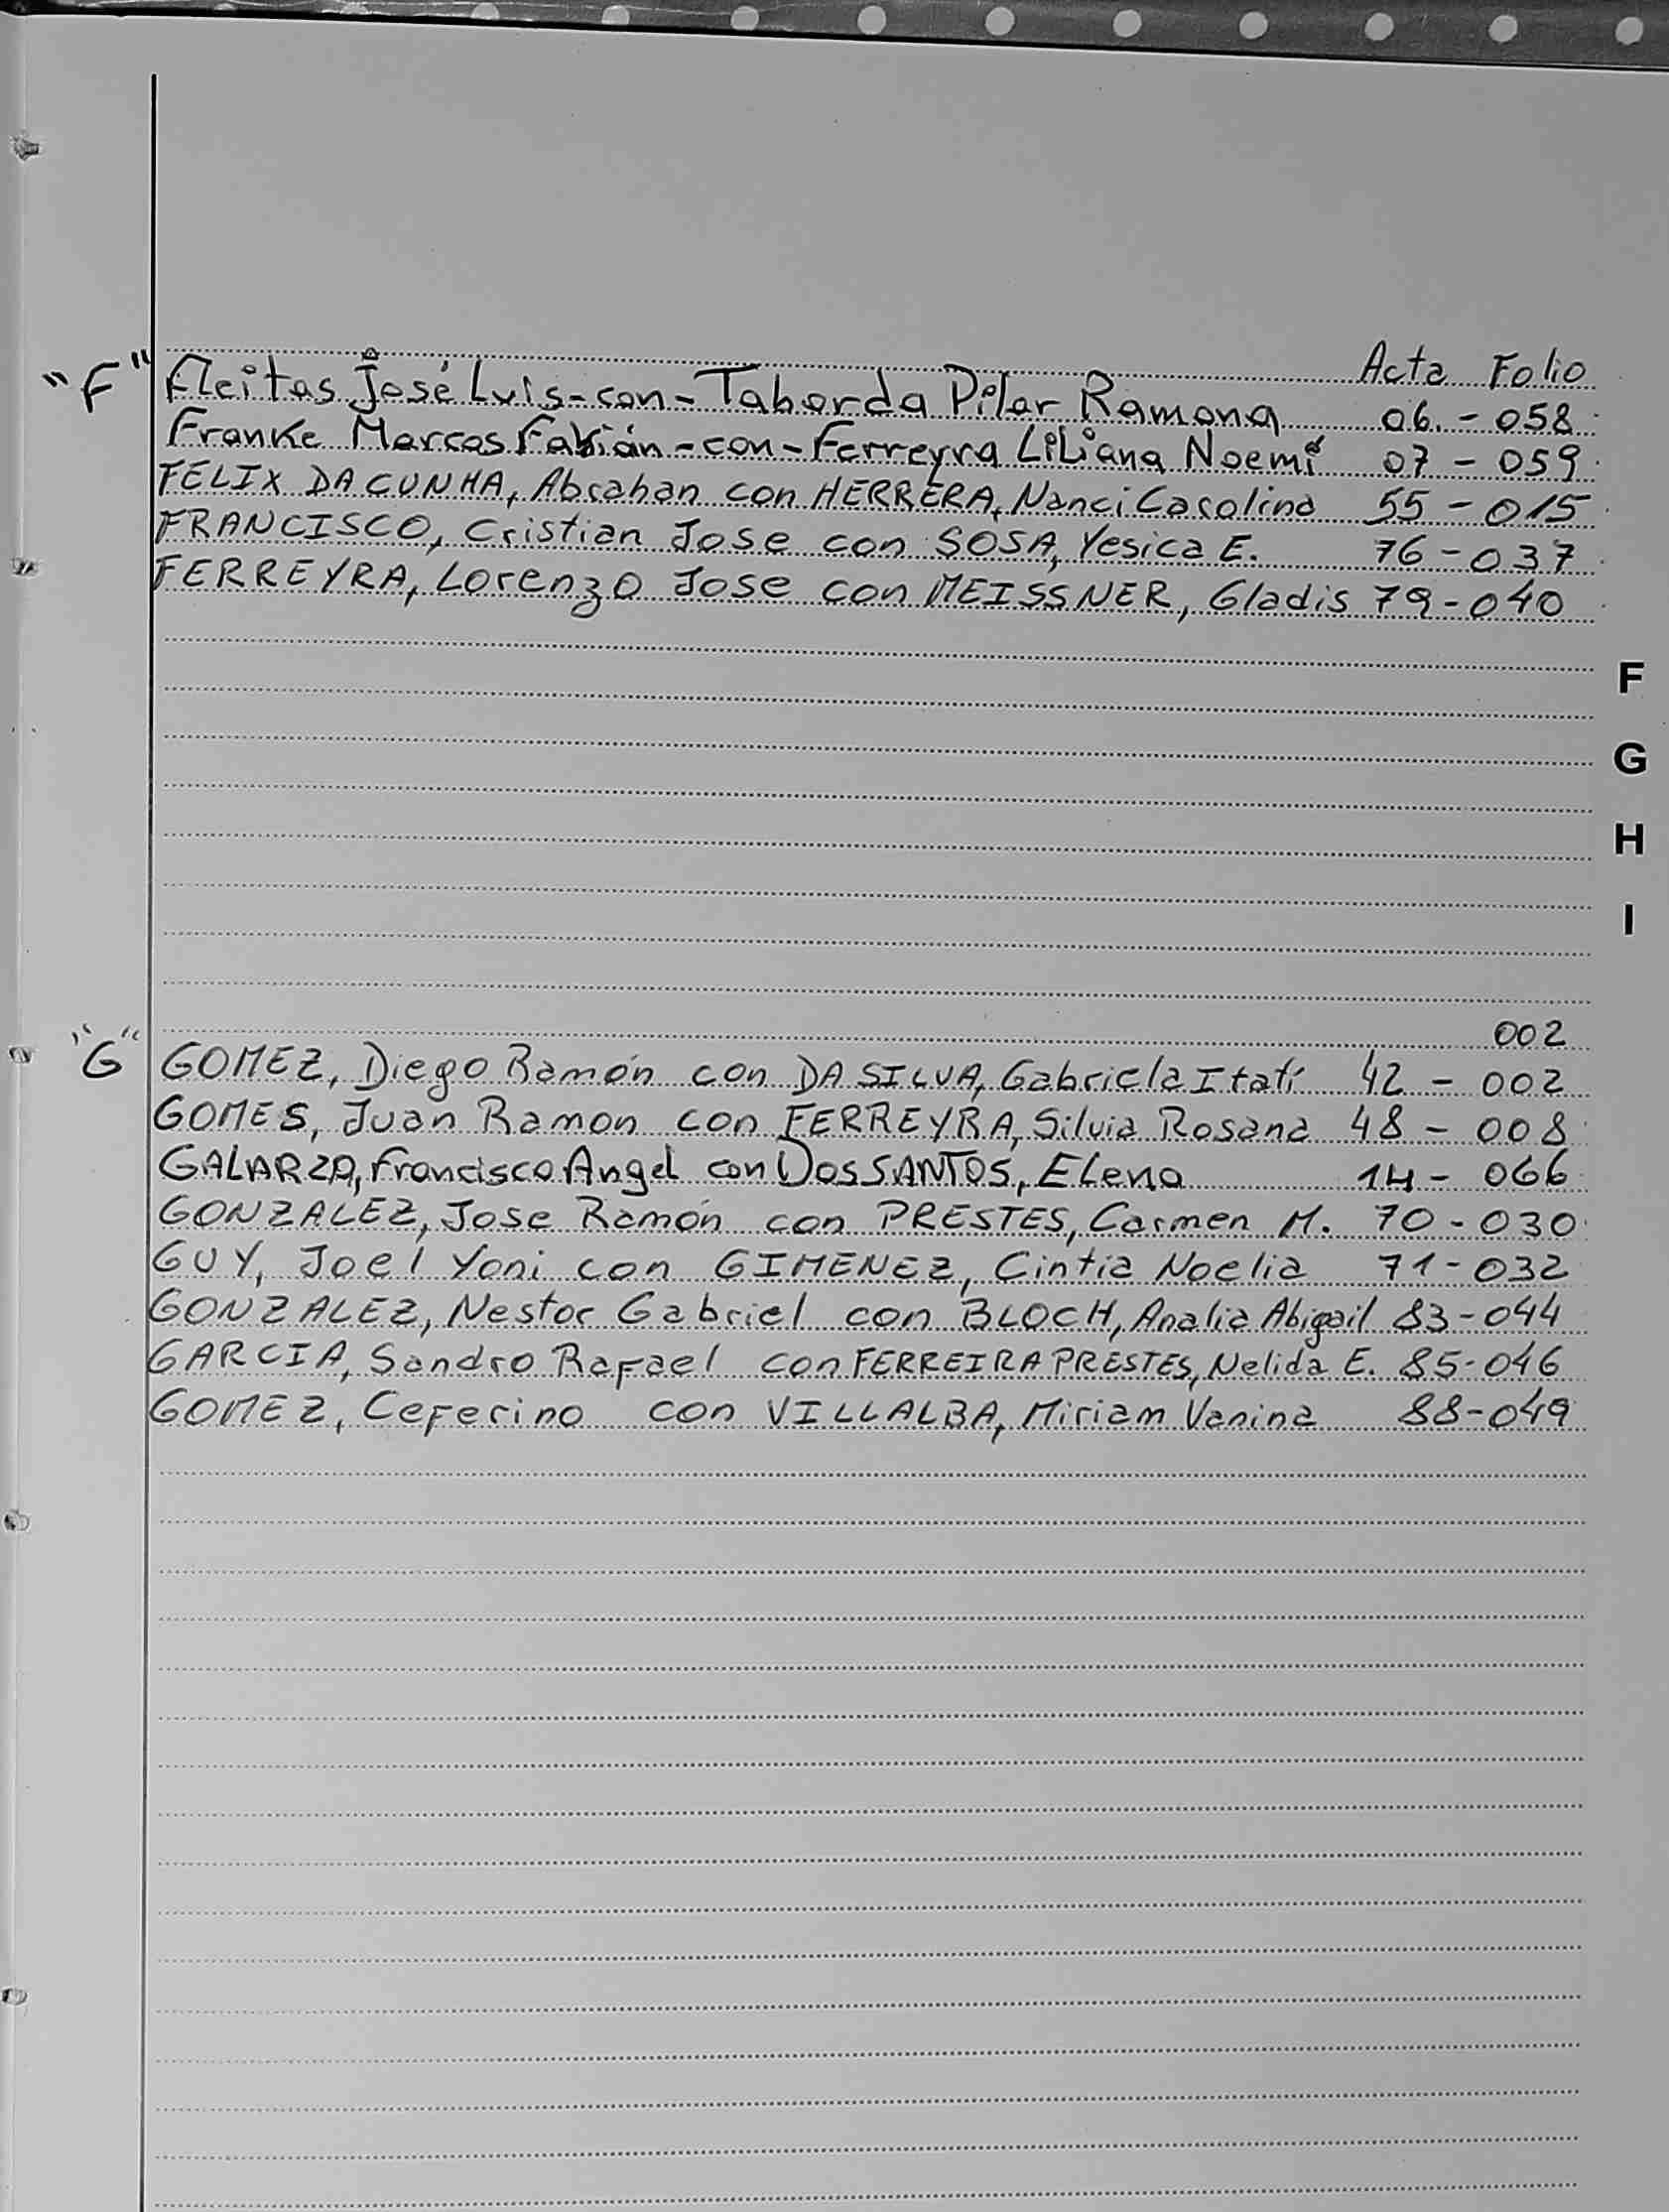 Acta Folio
"F" Fleitas José Luis - con - Taborda Pilar Ramona 06. - 058
Franke Marcos Fabián - con - Ferreyra Liliana Noemí 07 - 059
FELIX DA CUNHA, Abrahan con HERRERA, Nanci Carolina 55 - 015
FRANCISCO, Cristian Jose con SOSA, Yesica E. 76 - 037
FERREYRA, Lorenzo Jose con MEISSNER, Gladis 79 - 040
F
G
H
I
002
"G" GOMEZ, Diego Ramón con DA SILVA, Gabriela Itatí 42 - 002
GOMES, Juan Ramon con FERREYRA, Silvia Rosana 48 - 008
GALARZA, Francisco Angel con DOS SANTOS, Elena 14 - 066
GONZALEZ, Jose Ramón con PRESTES, Carmen M. 70 - 030
GUY, Joel Yoni con GIMENEZ, Cintia Noelia 71 - 032
GONZALEZ, Nestor Gabriel con BLOCH, Analia Abigail 83 - 044
GARCIA, Sandro Rafael con FERREIRA PRESTES, Nelida E. 85 - 046
GOMEZ, Ceferino con VILLALBA, Miriam Vanina 88 - 049